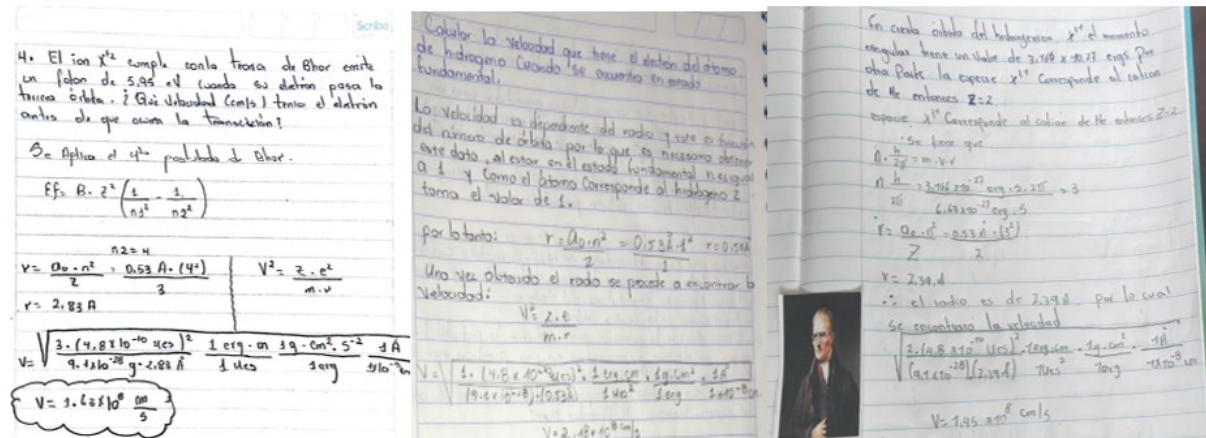 Scribe
4. El ion X⁺² cumple con la troria de Bhor emite
un foton de 5,95 eV cuando su eletron pasa la
tercera órbita. ¿Qué velocidad (cm/s) tenia el eletron
antes de que ocurra la transición?
Se Aplica el 4to postulado d Bhor.
Ef= B· z² (1/n1² - 1/n2²)
n2=4
r= a₀·n²/z = 0.53 A·(4²)/3
V²= z·e²/m·r
r= 2,83 A
V= √ 3·(4,8x10⁻¹⁰ ues)²/9.1x10⁻²⁸ g·2.83 A 1 erg·cm/1 ues 1g·cm²·s⁻²/1erg 1A/1x10⁻⁸cm
V= 1.63x10⁸ cm/s
Calular la velocidad que tiene el eletron del atomo
de hidrogeno Cuando se encuentra en estado
fundamental.
La Velocidad es dependiente del radio y este en función
del número de órbita por lo que es necesario obtener
este dato, al estar en el estado fundamental n es igual
a 1 y como el átomo Corresponde al hidrógeno Z
toma el valor de 1.
por lo tanto: r= a₀·n²/Z = 0.53Å·1²/1 r=0.53Å
Una vez obtenido el radio se procede a encontrar la
velocidad:
V²= z·e/m·r
V= √ 1·(4.8x10⁻¹⁰ues)²/(9.1x10⁻²⁸)·(0.53Å) · 1erg·cm/1ues² · 1g·cm²/1erg · 1Å/1x10⁻⁸cm
V=2.18x10⁸ cm/s
En cuala órbita del hidrogenion x¹⁺ el momento
angular tiene un valor de 3.166 x 10-27 ergs. Por
otra Parte la especie x¹⁺ Corresponde al cation
de He entonces Z=2.
especie x¹⁺ Corresponde al cation de He entonces Z=2
Se tiene que
n·h/2π = m·v·r
n h/2π = 3.166x10⁻²⁷ erg·s·2π/6.63x10⁻²⁷ erg·s = 3
r= a₀·n²/Z = 0.53Å·(3²)/2
r= 2,39 A
∴ el radio es de 2.39A por lo cual
se encontrara la velocidad
√ 2·(4.8x10⁻¹⁰ ues)²/(9.1x10⁻²⁸)(2.39A) · 1erg·cm/1ues² · 1g·cm²/1erg · 1Å/1x10⁻⁸ cm
V=1.45 x10⁸ cm/s